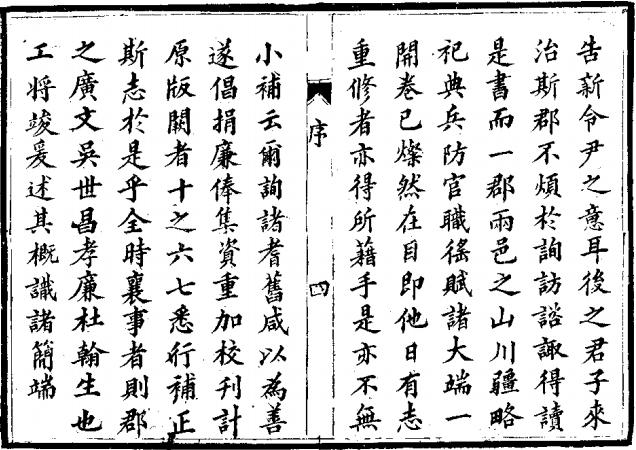 告新令尹之意耳後之君子來
治斯郡不煩於詢訪諮諏得讀
是書而一郡兩邑之山川疆略
祀典兵防官職徭賦諸大端一
開卷已燦然在目即他日有志
重修者亦得所藉手是亦不無
序
四
小補云爾詢諸耆舊咸以為善
遂倡捐廉俸集資重加校刊計
原版闕者十之六七悉行補正
斯志於是乎全時襄事者則郡
之廣文吳世昌孝廉杜翰生也
工將竣爰述其概識諸簡端